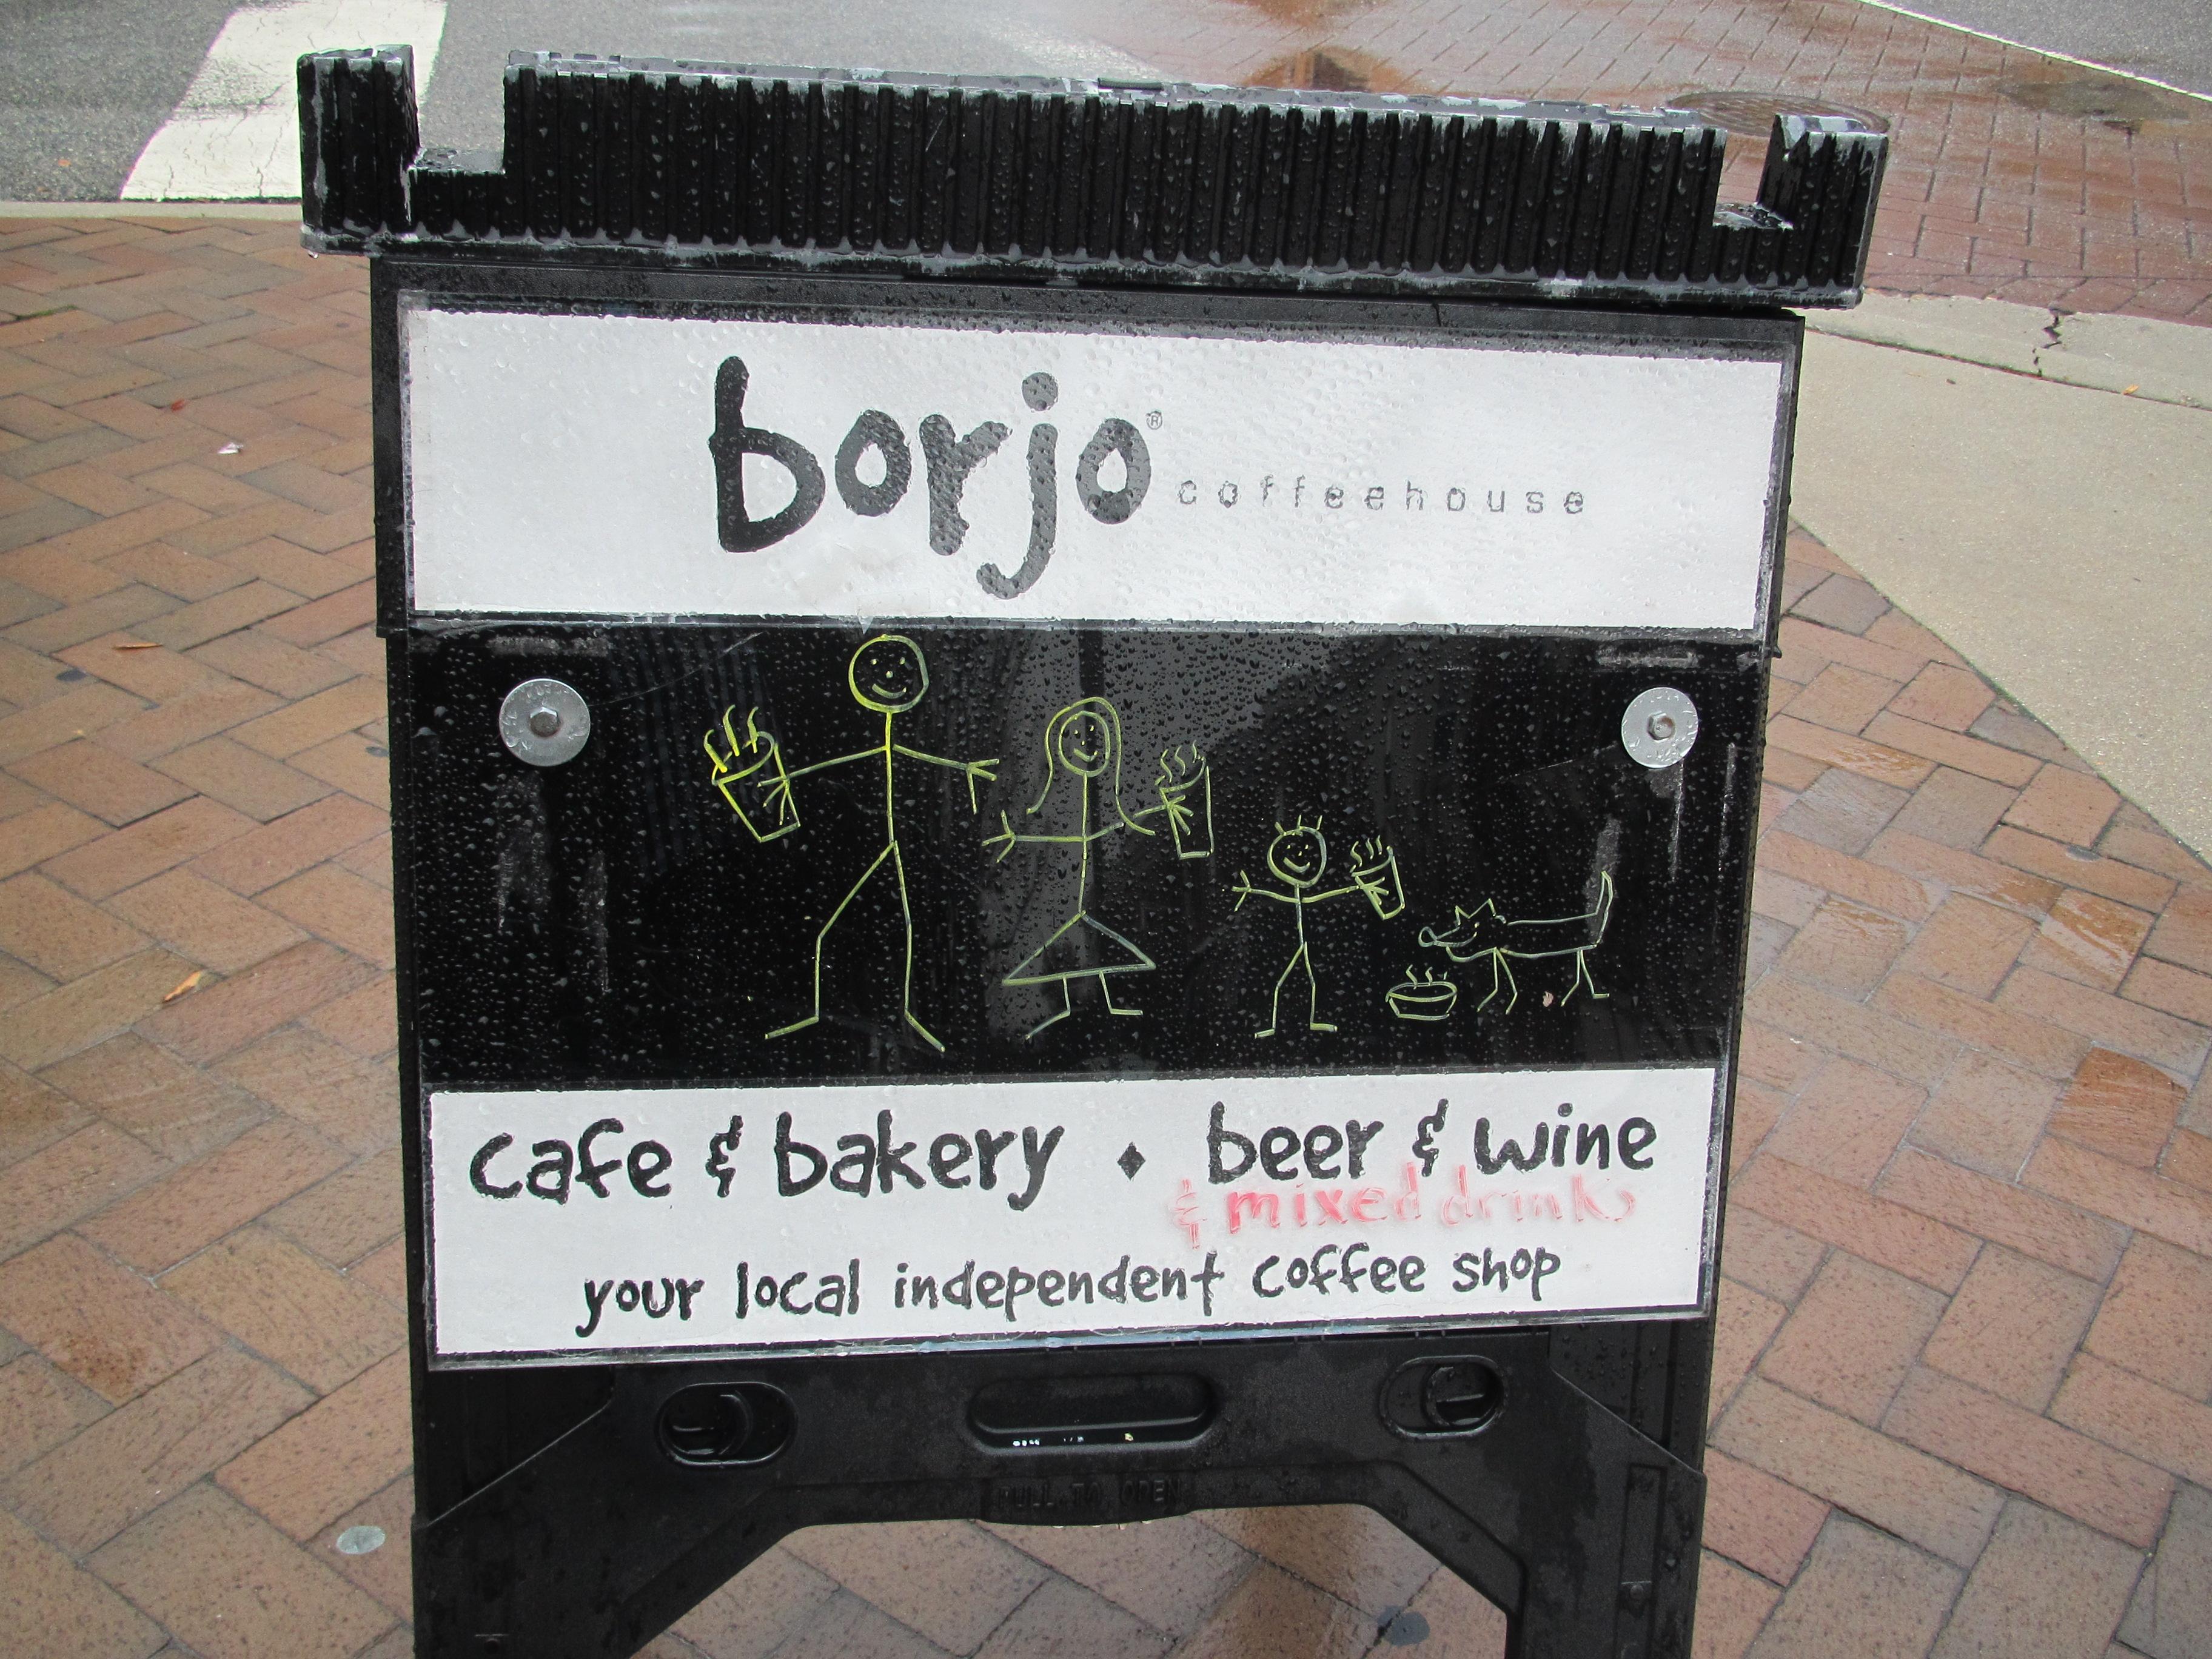 borjo® coffeehouse
cafe & bakery ♦ beer & wine
& mixed drinks
your local independent coffee shop
PULL TO OPEN